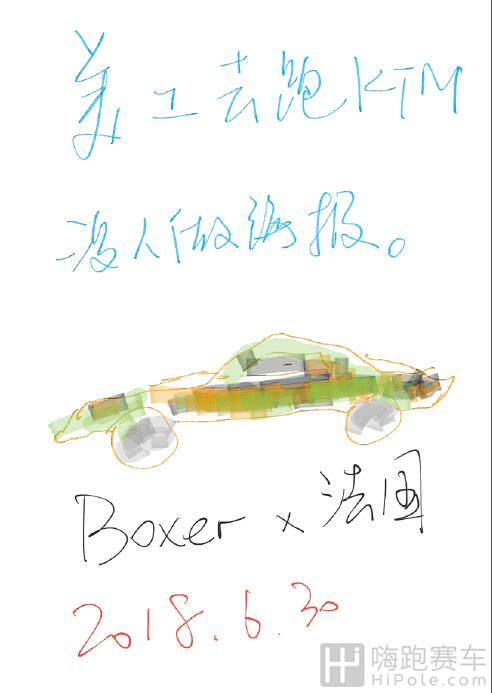 美工去跑KTM
没人做海报。
Boxer x 法国
2018.6.30
嗨跑赛车
HiPole.com